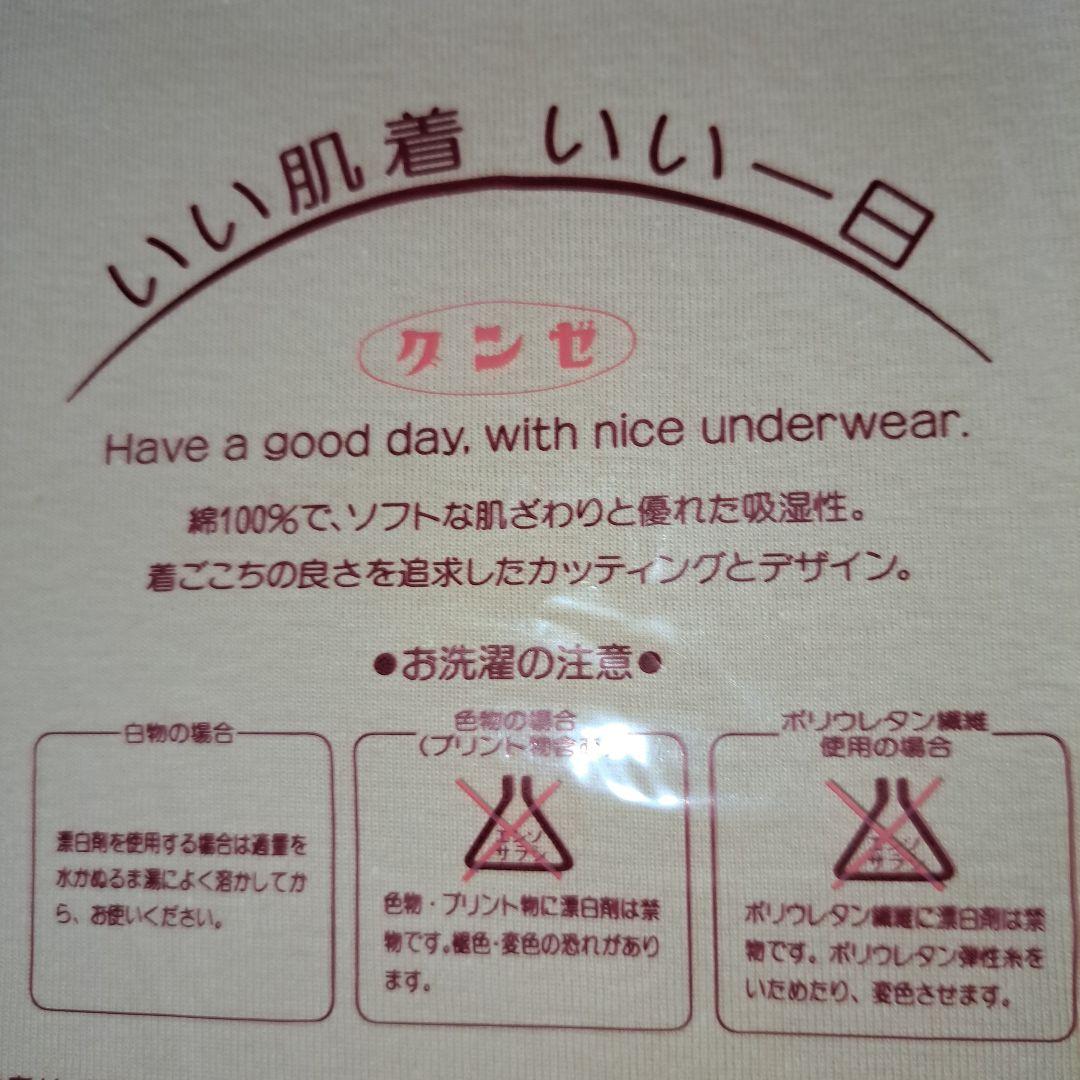 いい肌着 いい一日
クンゼ
Have a good day, with nice underwear.
綿100%で、ソフトな肌ざわりと優れた吸湿性。
着ごこちの良さを追求したカッティングとデザイン。
●お洗濯の注意●
白物の場合
漂白剤を使用する場合は適量を
水かぬるま湯によく溶かしてか
ら、お使いください。
色物の場合
(プリント物含む)
エンソ
サラシ
色物・プリント物に漂白剤は禁
物です。褪色・変色の恐れがあり
ます。
ポリウレタン繊維
使用の場合
エンソ
サラシ
ポリウレタン繊維に漂白剤は禁
物です。ポリウレタン弾性糸を
いためたり、変色させます。